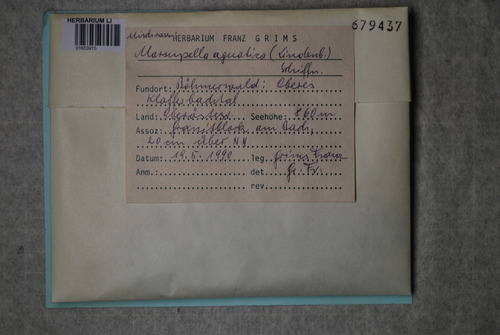 HERBARIUM LJ
679437
HERBARIUM FRANZ GRIMS
Marsupella aquatica (Lindenb.)
Schiffn.
Fundort: Böhmerwald: Oberes
Land: Seehöhe: 860 m
Assoz: Granitblock am Bach,
20 cm über NW
Datum: 19.5.1990 leg. Grims Franz
Anm.: det. Gr. Fr.
rev.